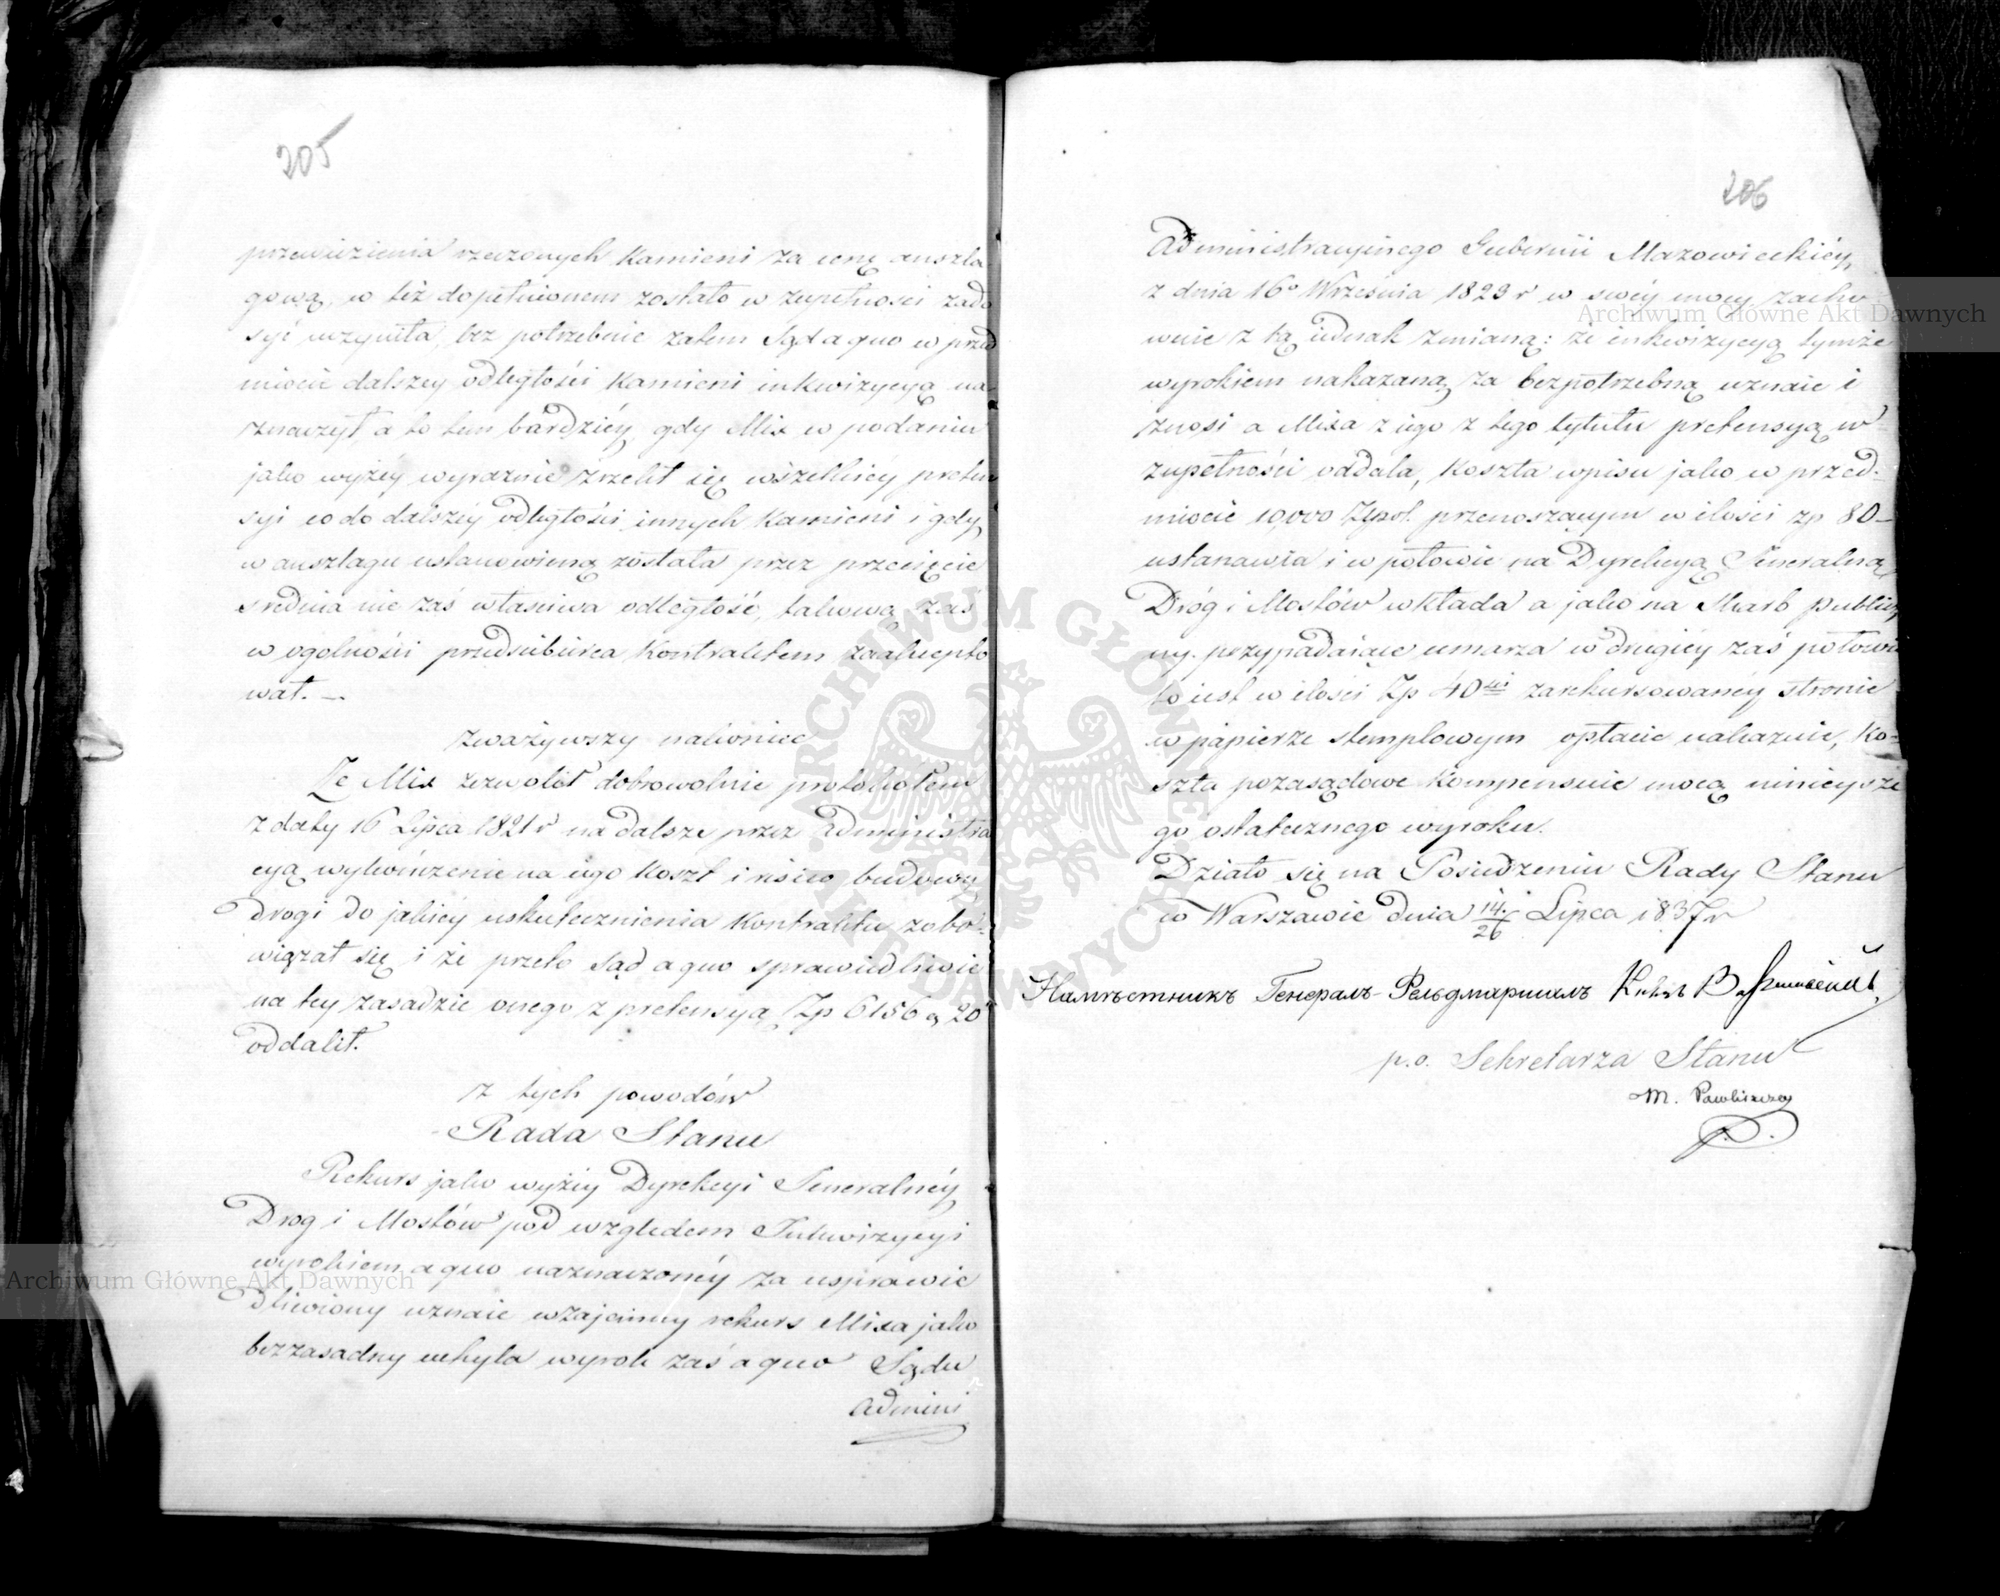 205
przewiezienia rzeczonych kamieni za cenę anszla
gową, w też dopełnionem zostało w zupełności zado
syć uczyniła, bez potrzebnie zatem Sąd a quo w przed
miocie dalszey odległości kamieni inkwizycyą na-
znaczył a to tem bardziéy, gdy Mix w podaniu
jako wyżéy wyraznie zrzekł się wszelkiey preten
syi co do dalszéy odległości innych kamieni i gdy
w anszlagu ustanowioną została przez przecięcie
srednia nie zaś własciwa odległość, takową zaś
w ogolności przedsiębierca kontraktem zaakcepto
wał. —
zważywszy nakoniec
Że Mix zezwolił dobrowolnie protokołem
z daty 16 Lipca 1821 r na dalsze przez Administra
cyą wykończenie na iego koszt i risico budowy
drogi do jakiey uskutecznienia kontraktu zobo-
wiązał się i że przeto Sąd a quo sprawiedliwie
na tey zasadzie onego z pretensyą Zp 6156 g 20
oddalił.
z tych powodów
Rada Stanu
Rekurs jako wyżéy Dyrekcyi Generalnéy
Dróg i Mostów pod względem Inkwizycyi
wyrokiem a quo naznaczonéy za usprawie
dliwiony uznaie wzajemny rekurs Mixa jako
bezzasadny uchyla wyrok zaś a quo Sądu
Admini
206
Administracyinego Gubernii Mazowieckiéy
z dnia 16º Września 1829 r w swéy mocy zacho
wuie z tą iednak zmianą: że inkwizycyą tymże
wyrokiem nakazaną za bezpotrzebną uznaie i
znosi a Mixa z iego z tego tytułu pretensyą w
zupełności oddala, koszta wpisu jako w przed-
miocie 10,000 Złpol. przenoszącym w ilości zp 80–
ustanawia i w połowie na Dyrekcyą Generalną
Dróg i Mostów wkłada a jako na Skarb publicz
ny przypadaiące umarza w drugiéy zaś połowie
to iest w ilości Zp 40 zarekursowanéy stronie
w papierze stemplowym opłacić nakazuie, ko-
szta pozasądowe kompensuie mocą ninieysze
go ostatecznego wyroku.
Działo się na Posiedzeniu Rady Stanu
w Warszawie dnia 14/26 Lipca 1837 r
Намѣстникъ Генералъ-Фельдмаршалъ Князь Варшавскій
p.o. Sekretarza Stanu
M. Pawliszczew
Archiwum Główne Akt Dawnych
Archiwum Główne Akt Dawnych
ARCHIWUM GŁÓWNE AKT DAWNYCH